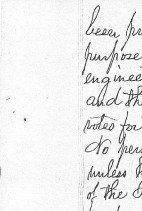 been pr
purpose
enginee
and th
votes for
No pers
unless h
of the B